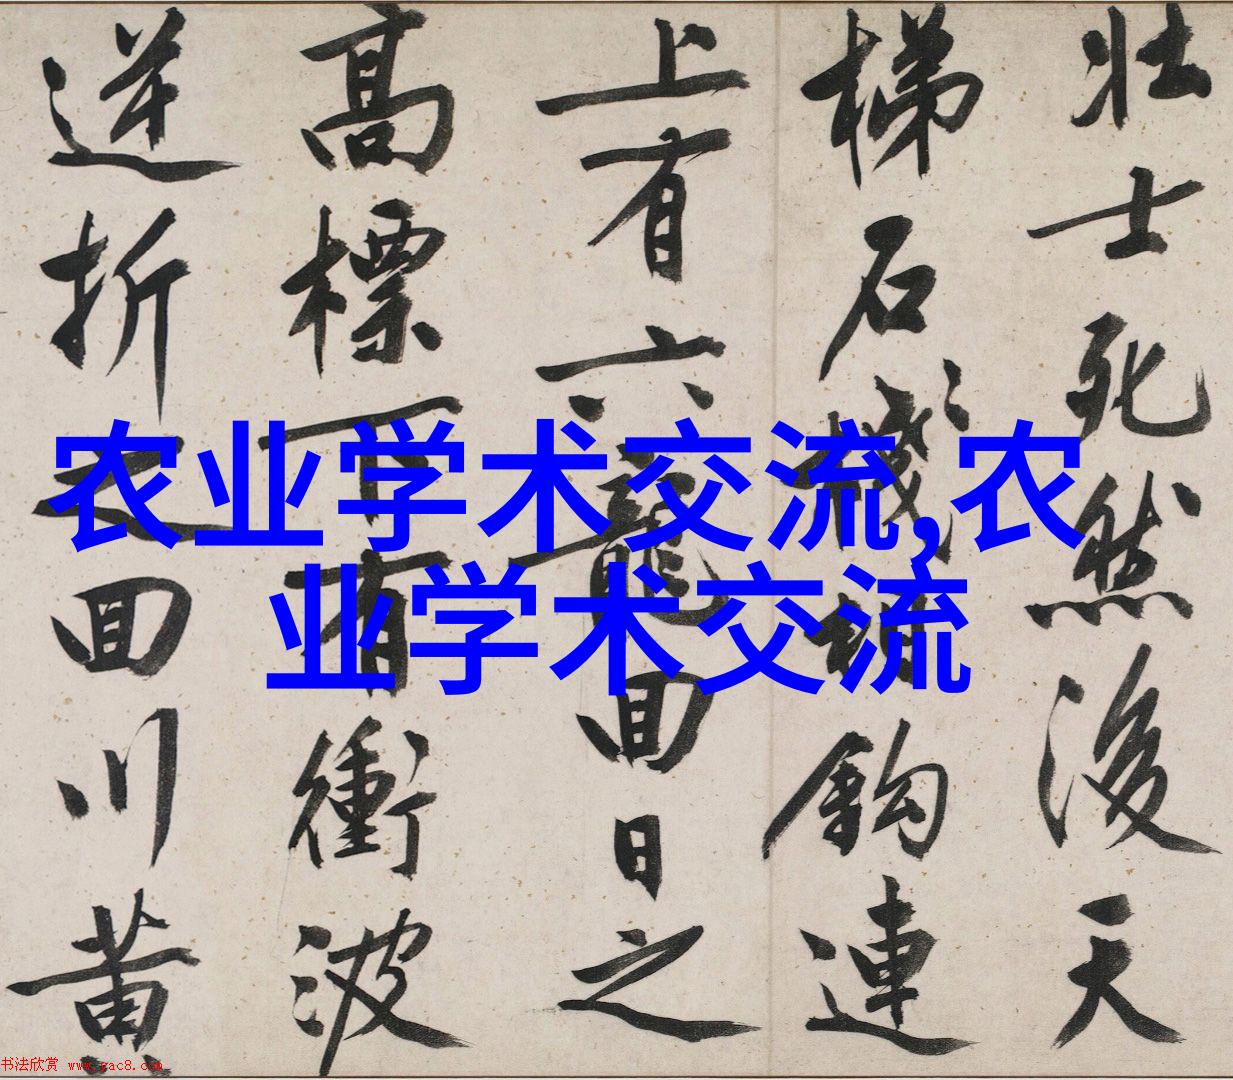 壮士死然後天
梯石棧相鈎連
上有六龍回日之
高標下有衝波
逆折之回川黄
农业学术交流,农
业学术交流
书法欣赏 www.yac8.com